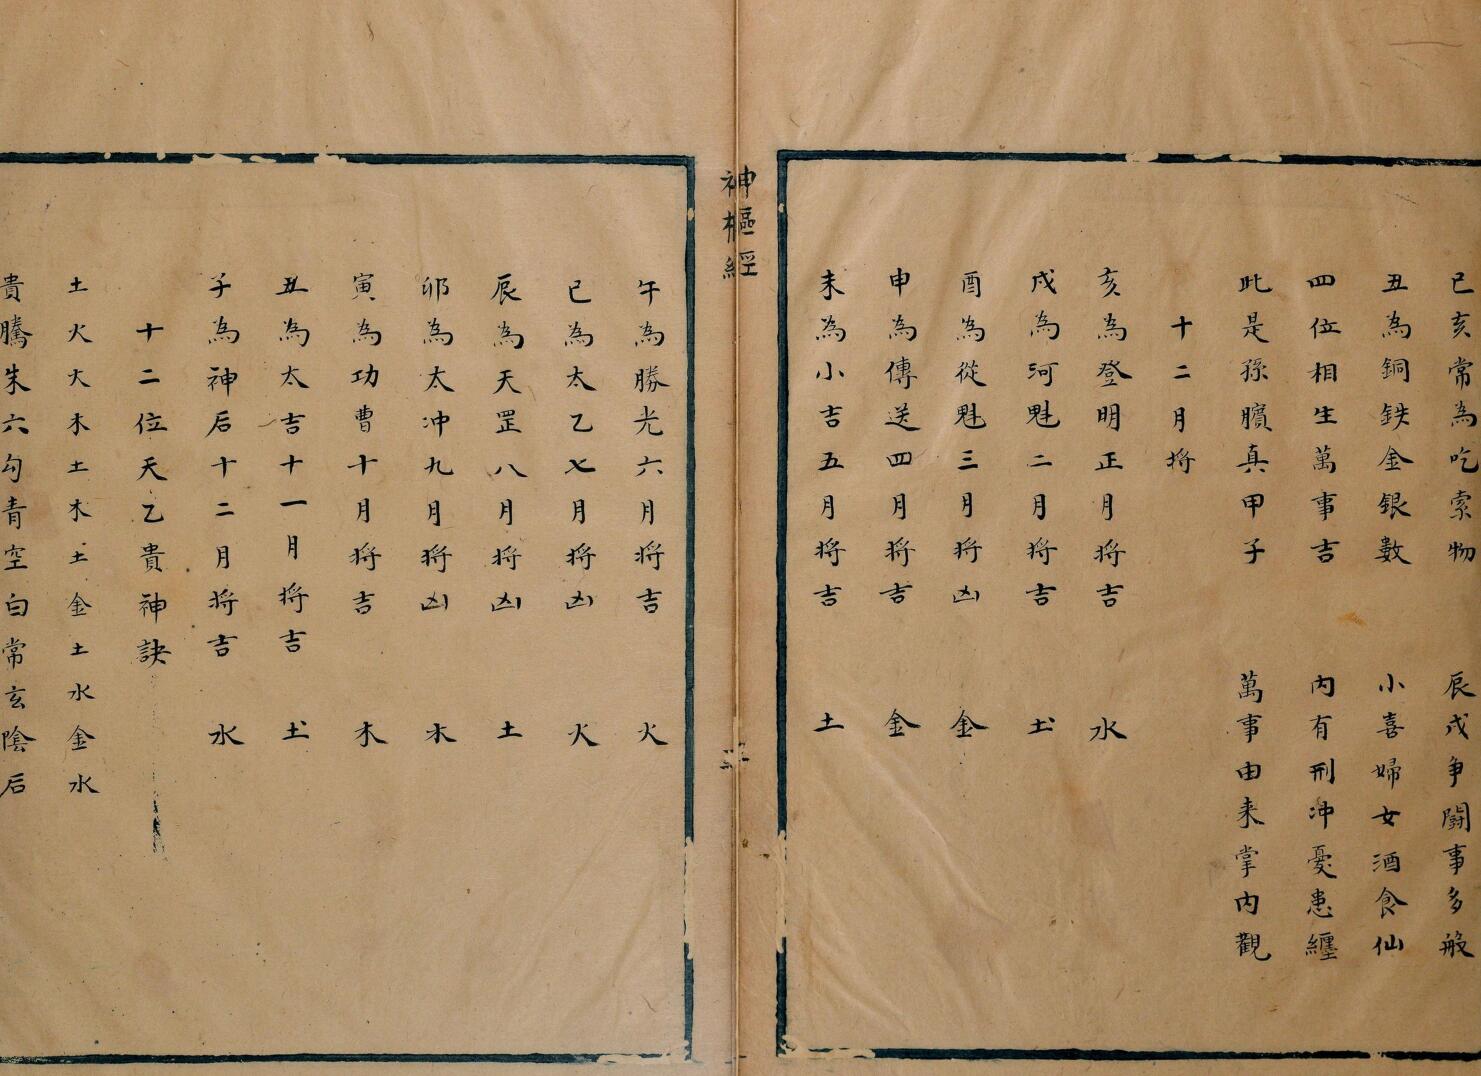 巳亥常為吃索物　辰戌争鬪事多般
丑為銅鉄金銀數　小喜婦女酒食仙
四位相生萬事吉　内有刑冲憂患纏
此是孫臏真甲子　萬事由来掌内觀
十二月將
亥為登明正月將吉　水
戌為河魁二月將吉　土
酉為從魁三月將凶　金
申為傳送四月將吉　金
未為小吉五月將吉　土
神樞經
午為勝光六月將吉　火
巳為太乙七月將凶　火
辰為天罡八月將凶　土
卯為太冲九月將凶　木
寅為功曹十月將吉　木
丑為太吉十一月將吉　土
子為神后十二月將吉　水
十二位天乙貴神訣
土火火木土木土金土水金水
貴騰朱六勾青空白常玄陰后